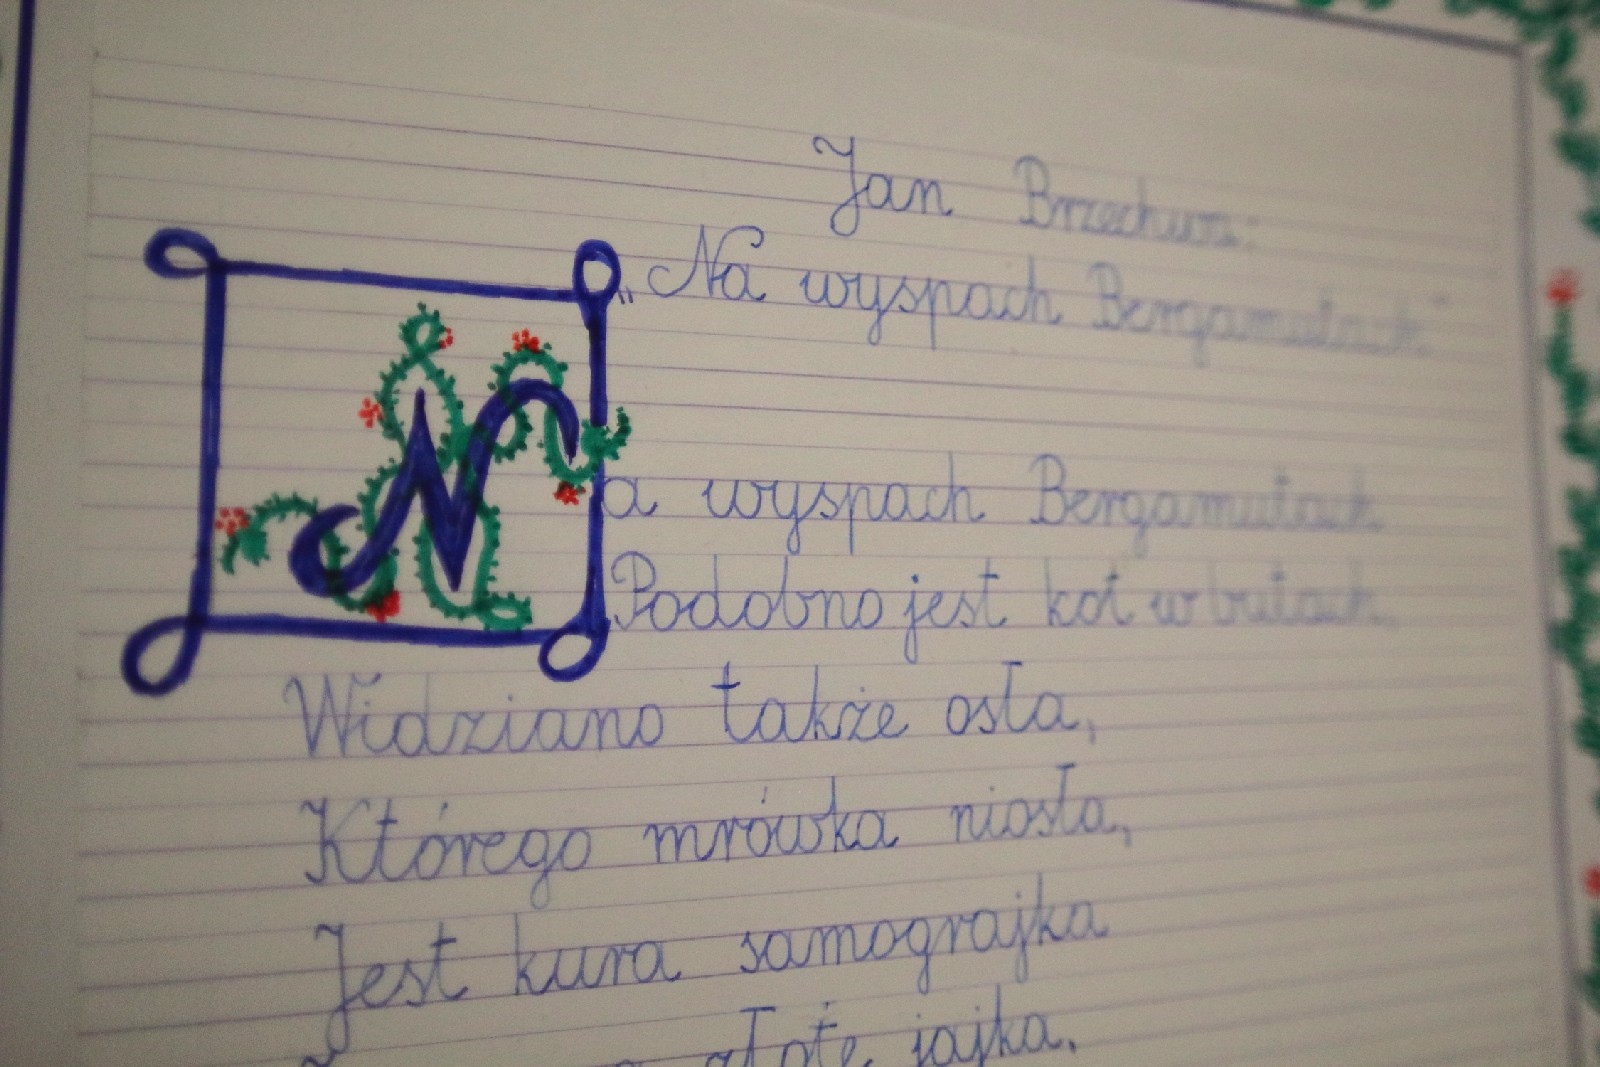 Jan Brzechwa:
„Na wyspach Bergamutach"
Na wyspach Bergamutach
Podobno jest kot w butach.
Widziano także osła,
Którego mrówka niosła,
Jest kura samograjka
złote jajka,